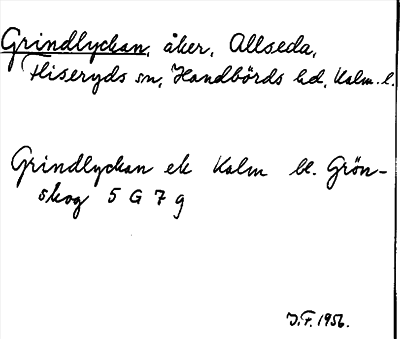 Grindlyckan, åker, Allseda,
Fliseryds sn, Handbörds hd, Kalm. l.
Grindlyckan ek Kalm bl. Grön-
skog 5 G 7 g
J.F. 1956.